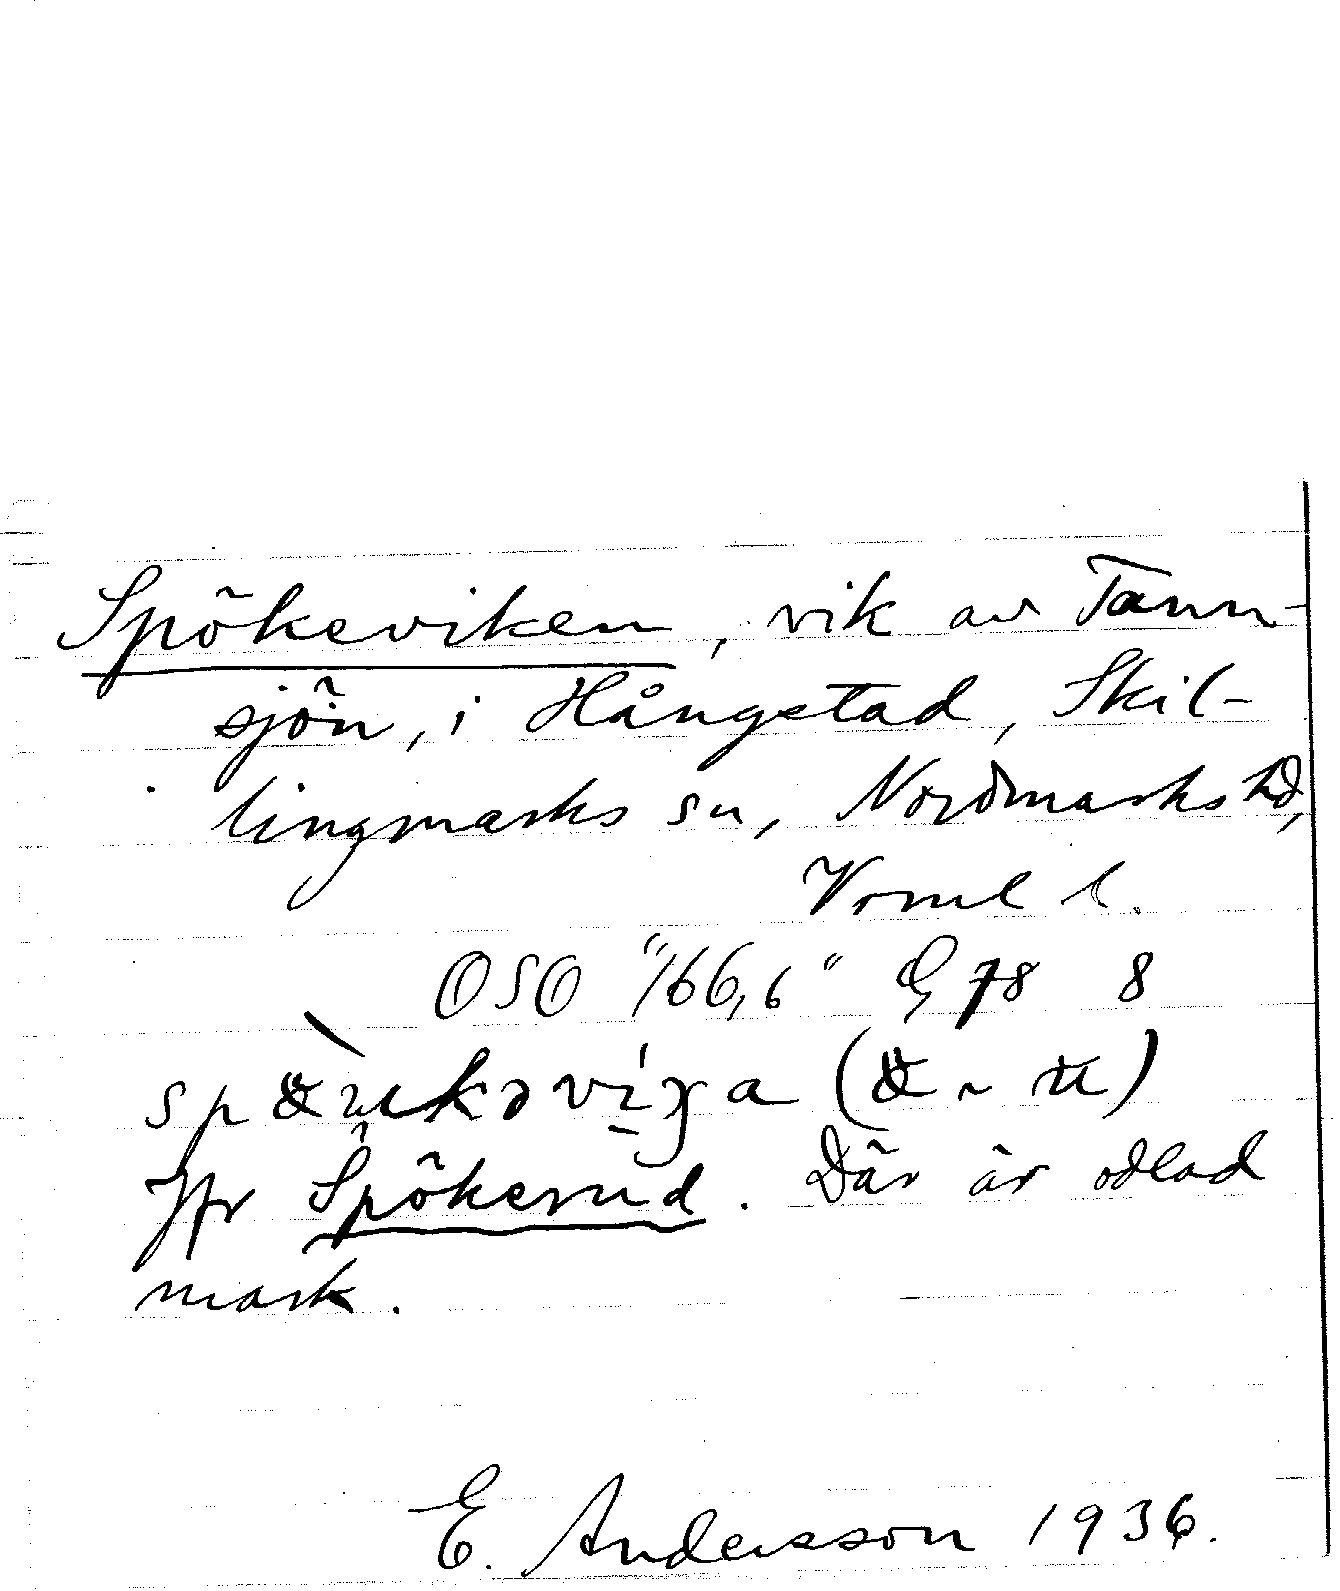 Spökeviken, vik av Tann-
sjön, i Hångstad, Skil-
lingmarks sn, Nordmarks hd,
Vrml l.
OSO "166,6" G 78 8
Jfr Spökerud. Där är odlad
mark.
E. Andersson 1936.